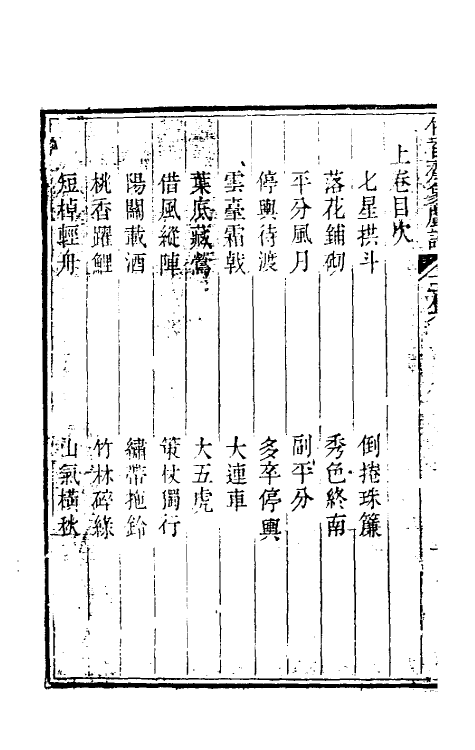 上卷目次
七星拱斗　倒捲珠簾
落花鋪砌　秀色終南
平分風月　副平分
停輿待渡　多卒停輿
雲臺霜戟　大連車
葉底藏鶯　大五虎
借風縱陣　策杖獨行
陽關載酒　繡帶拖鈴
桃香躍鯉　竹林碎綠
短棹輕舟　山氣橫秋